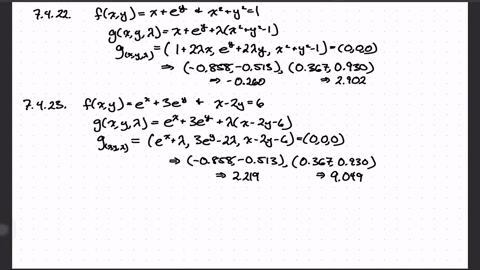 7.4.22. f(x,y) = x+e^y & x²+y²=1
g(x,y,λ) = x+e^y+λ(x²+y²-1)
g_(x,y,λ) = (1+2λx, e^y+2λy, x²+y²-1) = (0,0,0)
⇒ (-0.858,-0.513), (0.367,0.930)
⇒ -0.260 ⇒ 2.902
7.4.23. f(x,y) = e^x+3e^y & x-2y=6
g(x,y,λ) = e^x+3e^y+λ(x-2y-6)
g_(x,y,λ) = (e^x+λ, 3e^y-2λ, x-2y-6) = (0,0,0)
⇒ (-0.858,-0.513), (0.367,0.930)
⇒ 2.219 ⇒ 9.049